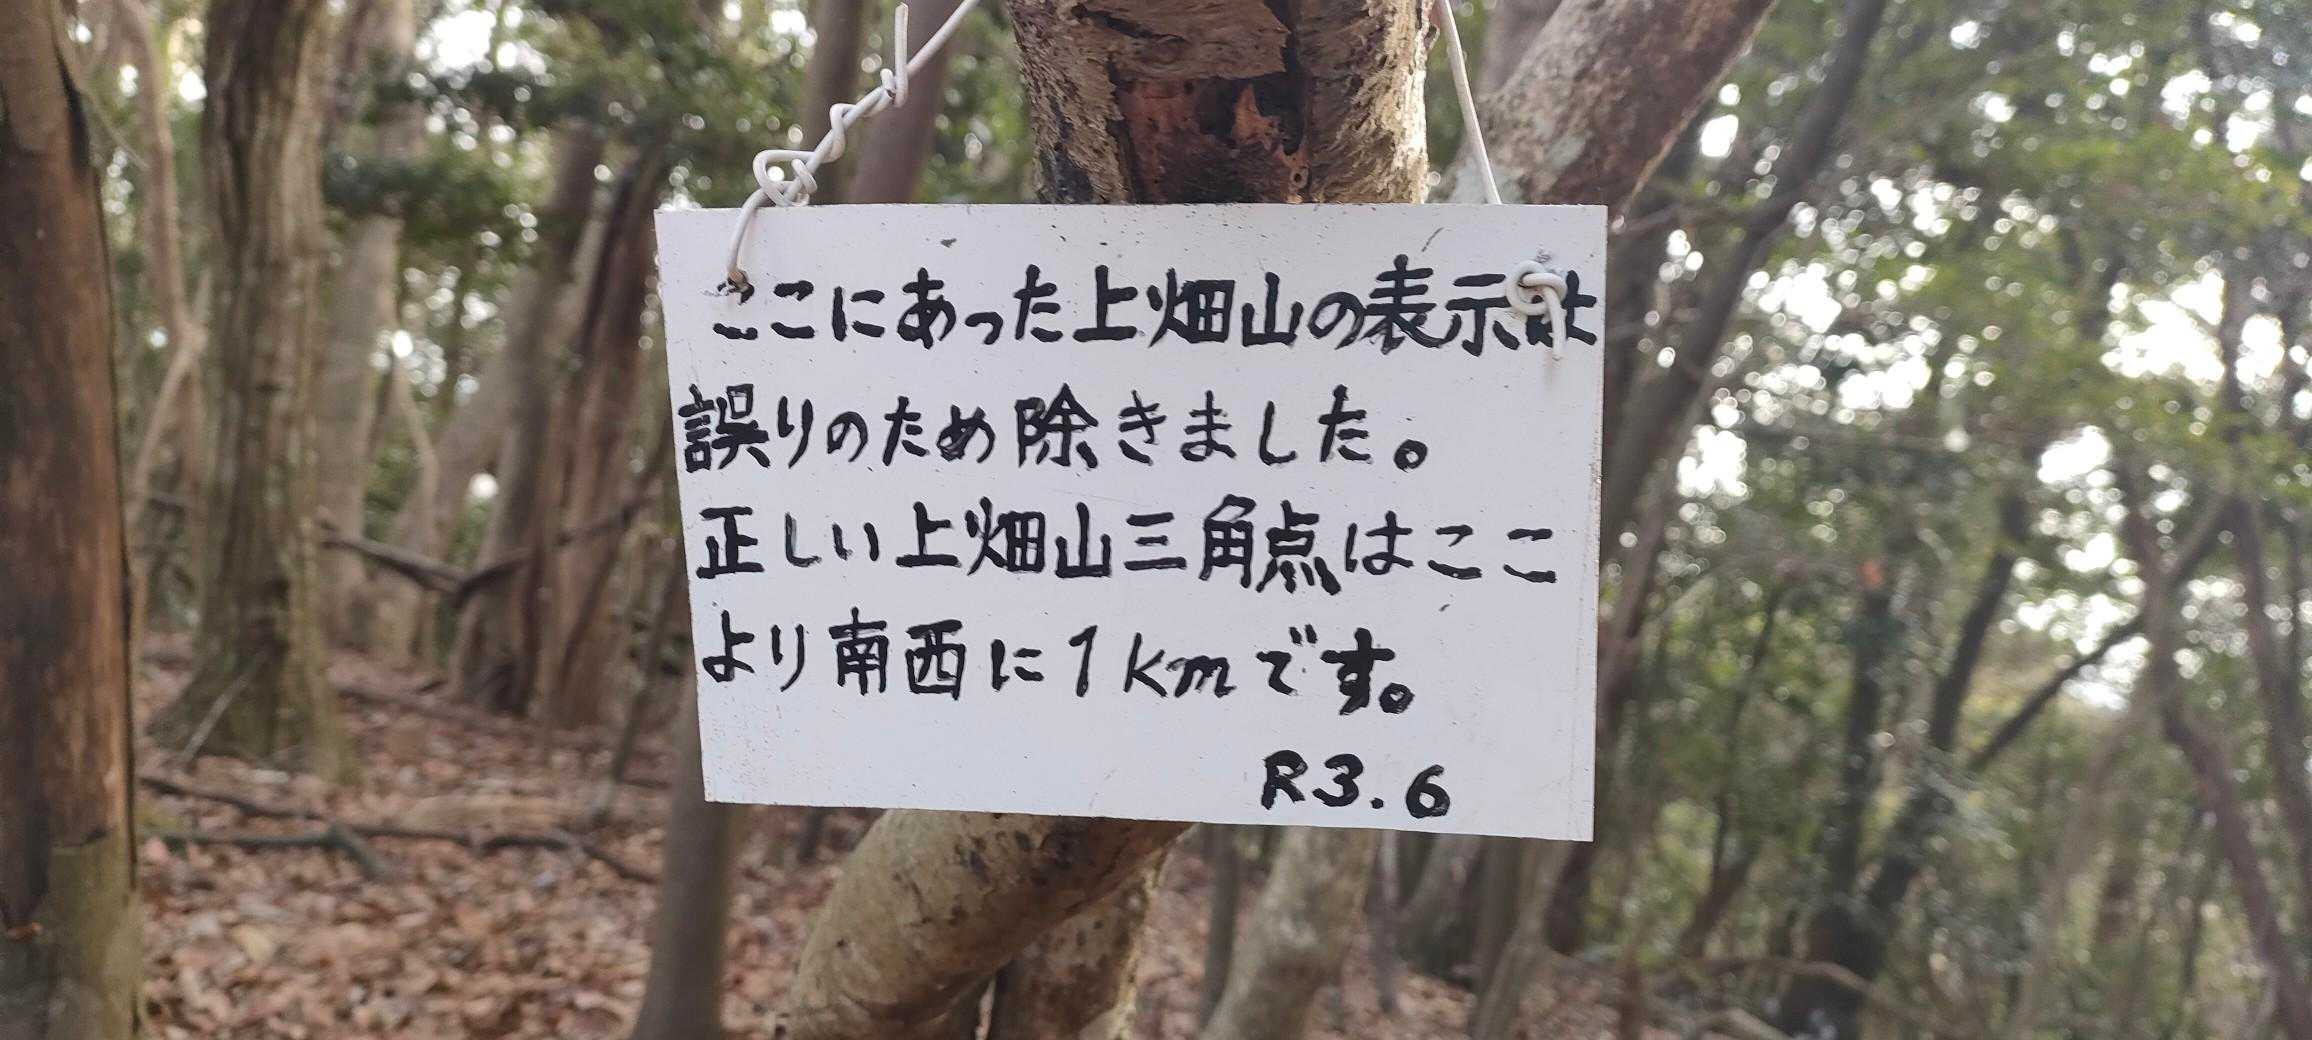 ここにあった上畑山の表示は
誤りのため除きました。
正しい上畑山三角点はここ
より南西に1kmです。
R3.6